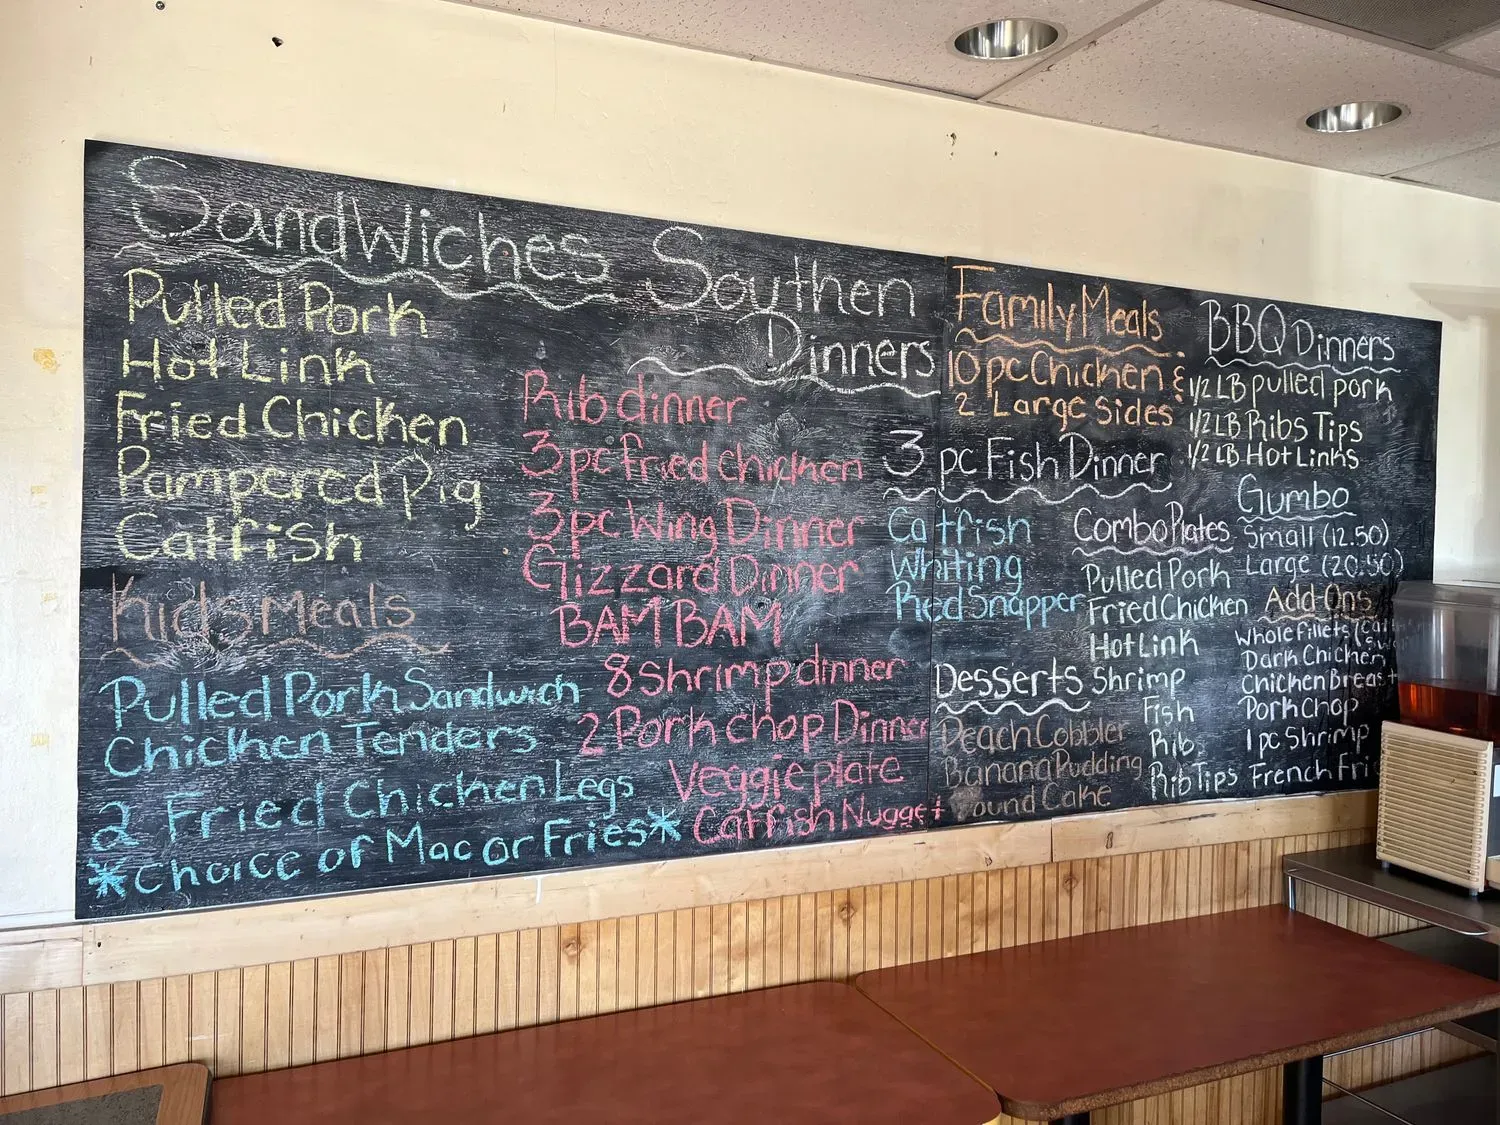 Sandwiches
Pulled Pork
Hot Link
Fried Chicken
Pampered Pig
Catfish
Kids Meals
Pulled Pork Sandwich
Chicken Tenders
2 Fried Chicken Legs
*Choice of Mac or Fries*
Southen
Dinners
Rib dinner
3pc fried chicken
3pc Wing Dinner
Gizzard Dinner
BAM BAM
8 shrimp dinner
2 Pork chop Dinner
Veggie plate
Catfish Nugget
Family Meals
10 pc Chicken &
2 Large Sides
3 pc Fish Dinner
Catfish
Whiting
Red Snapper
Desserts
Peach Cobbler
Banana Pudding
Pound Cake
Combo Plates
Pulled Pork
Fried Chicken
Hot Link
Shrimp
Fish
Rib
Rib Tips
BBQ Dinners
1/2 LB pulled pork
1/2 LB Ribs Tips
1/2 LB Hot Links
Gumbo
Small (12.50)
Large (20.50)
Add Ons
Whole fillets
Dark Chicken
Chicken Breast
Pork Chop
1 pc Shrimp
French Fri